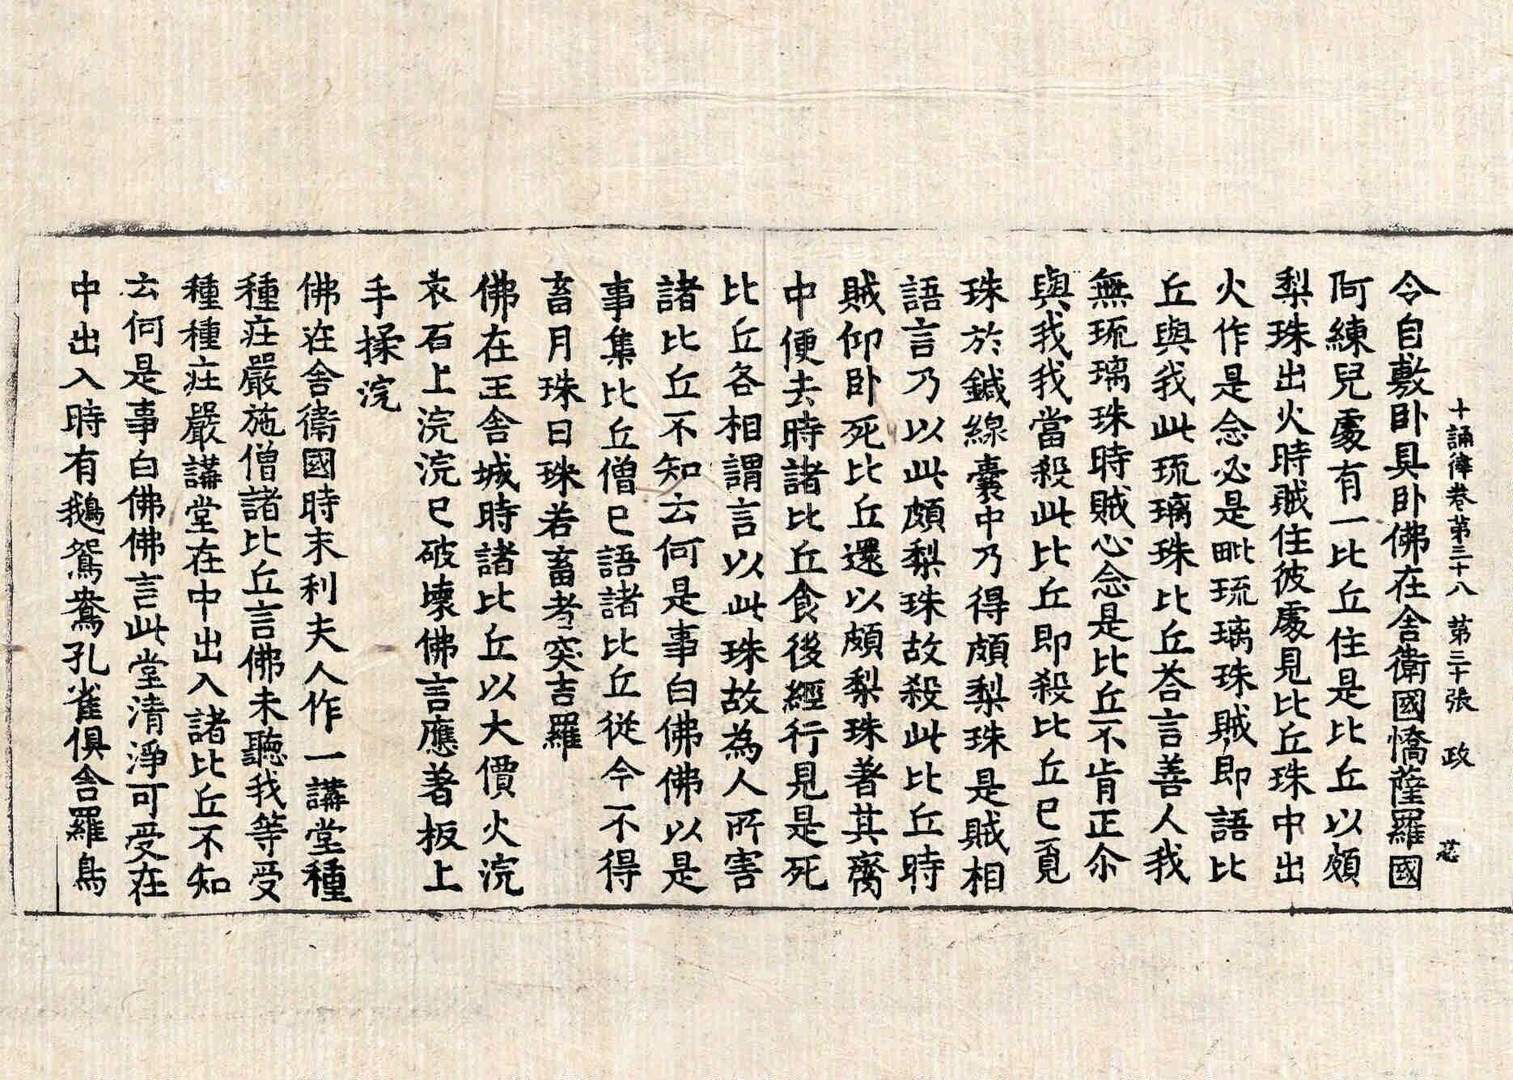 十誦律卷第三十八 第三十張 政
令自敷卧具卧佛在舍衛國憍薩羅國
阿練兒處有一比丘住是比丘以頗
梨珠出火時賊住彼處見比丘珠中出
火作是念必是毗琉璃珠賊即語比
丘與我此琉璃珠比丘荅言善人我
無琉璃珠時賊心念是比丘不肯正尒
與我我當殺此比丘即殺比丘已覓
珠於鍼線囊中乃得頗梨珠是賊相
語言乃以此頗梨珠故殺此比丘時
賊仰卧死比丘還以頗梨珠著其齎
中便去時諸比丘食後經行見是死
比丘各相謂言以此珠故為人所害
諸比丘不知云何是事白佛佛以是
事集比丘僧已語諸比丘從今不得
畜月珠日珠若畜者突吉羅
佛在王舍城時諸比丘以大價火浣
衣石上浣浣已破壞佛言應著板上
手揉浣
佛在舍衛國時末利夫人作一講堂種
種莊嚴施僧諸比丘言佛未聽我等受
種種莊嚴講堂在中出入諸比丘不知
云何是事白佛佛言此堂清淨可受在
中出入時有鵝鴛鴦孔雀俱舍羅鳥